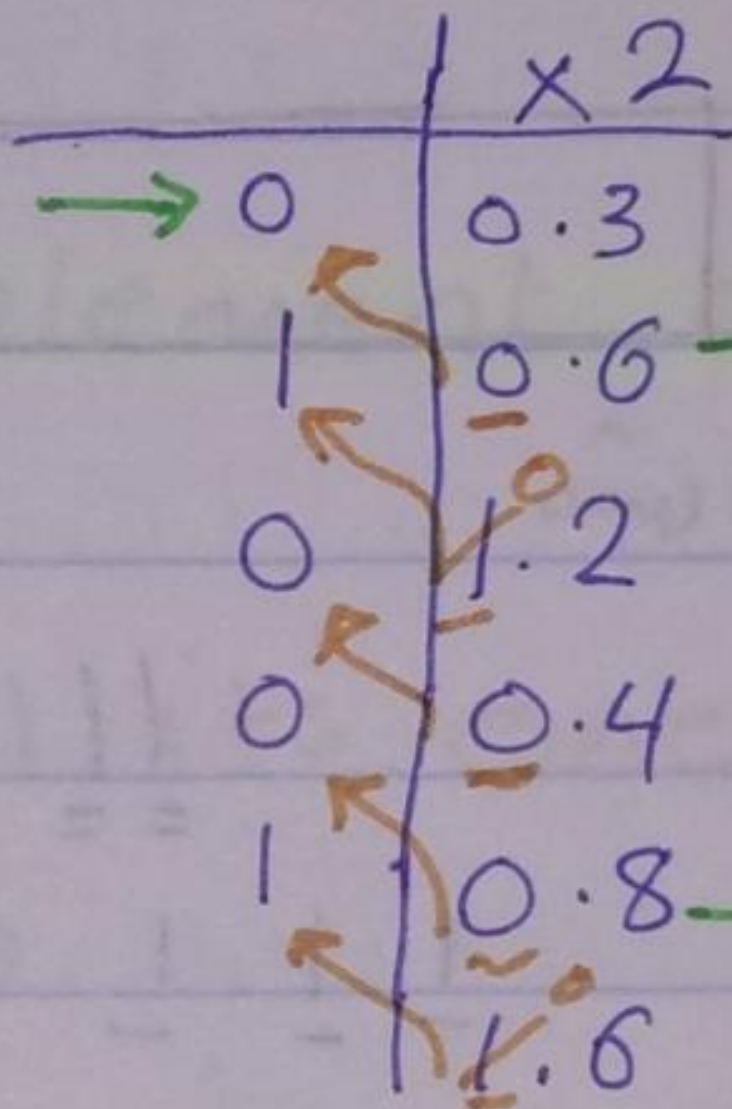 × 2
0 0.3
1 0.6
0 1.2 0
0 0.4
1 0.8
1.6 0